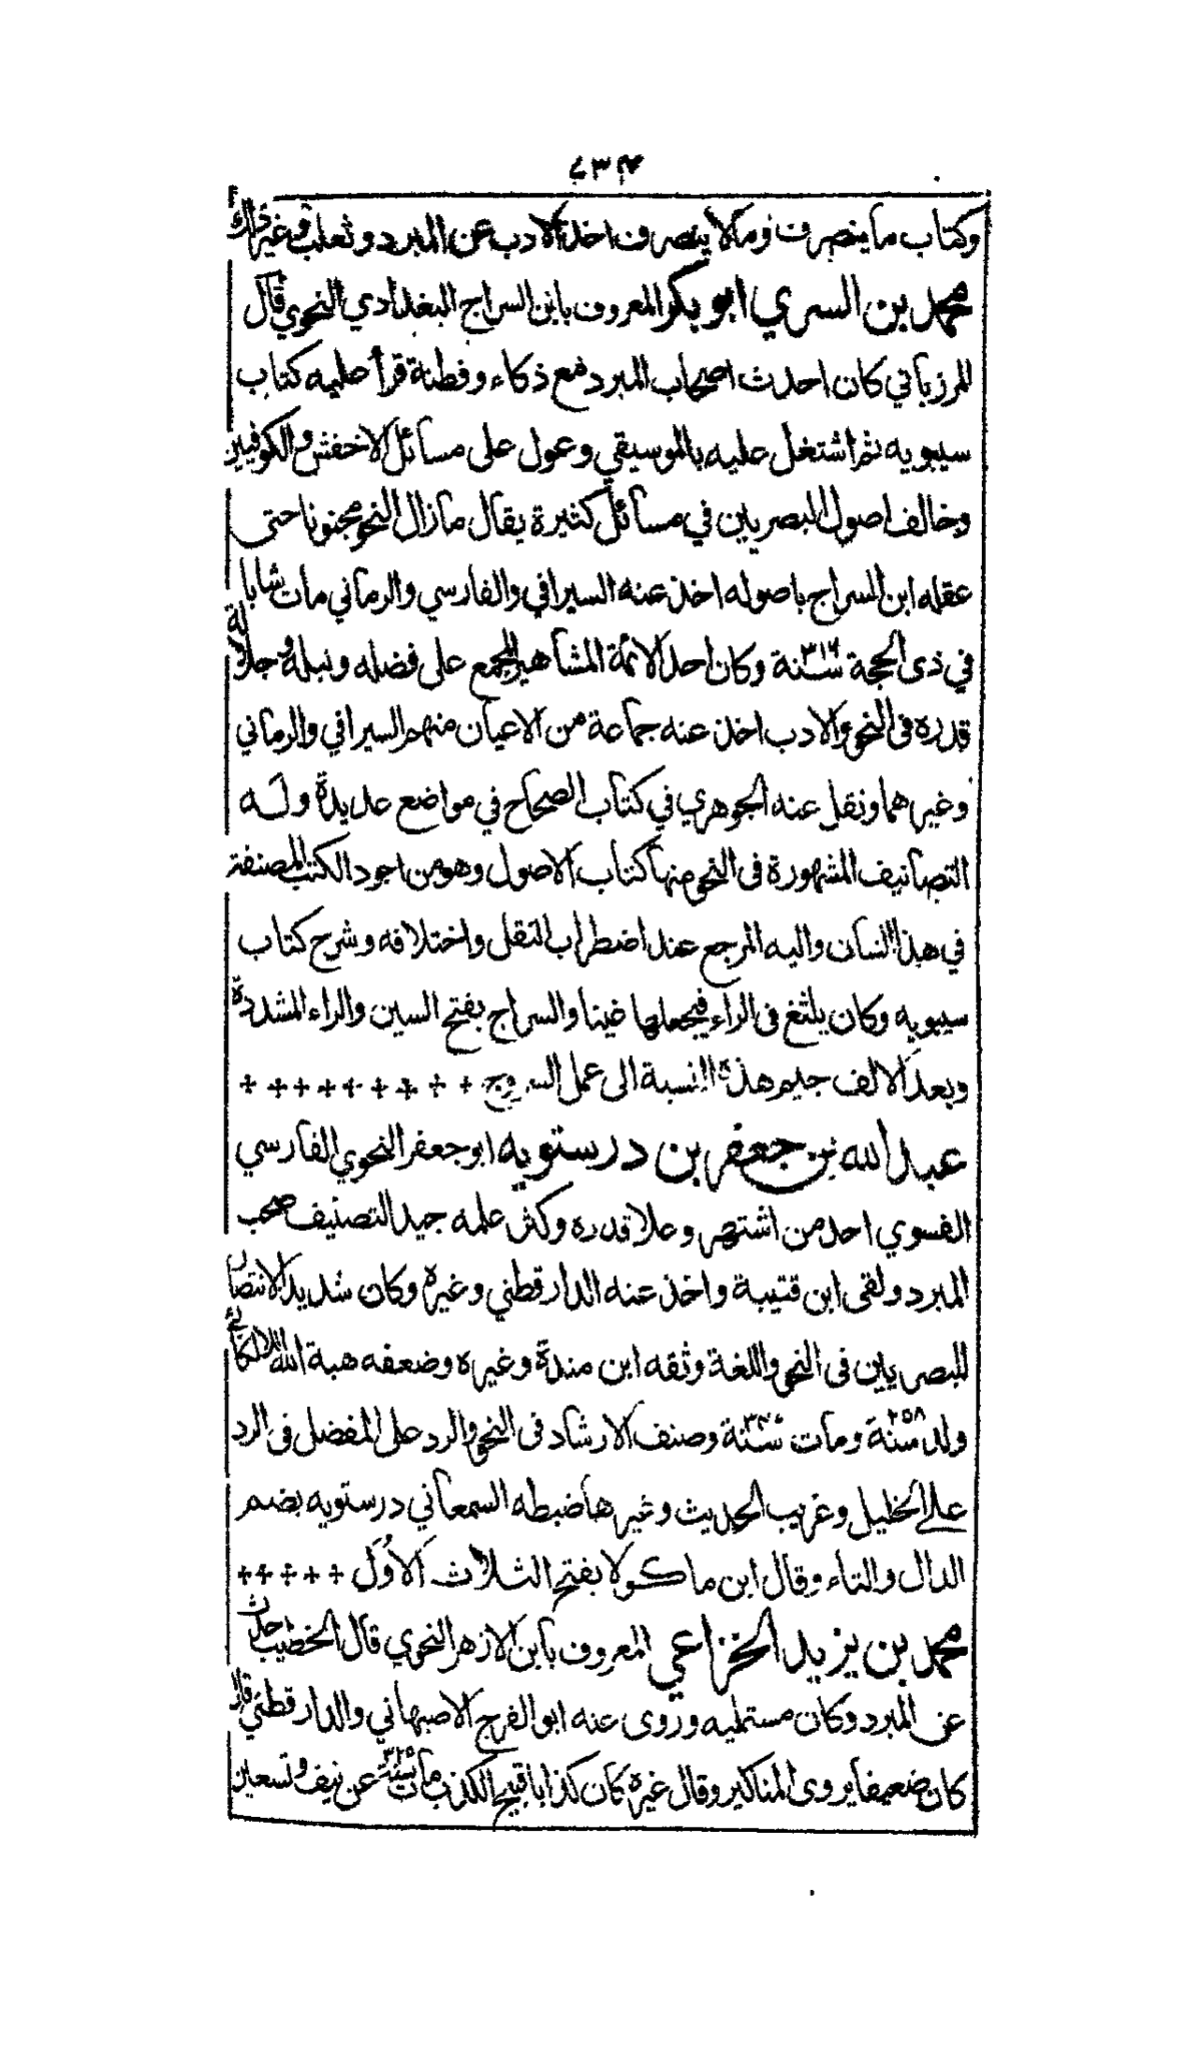 ٧٣٤
وكتاب ما ينصرف وما لا ينصرف اخذ الادب عن المبرد وثعلب وغير ذلك
محمد بن السري ابو بكر المعروف بابن السراج البغدادي النحوي قال
المرزباني كان احدث اصحاب المبرد مع ذكاء وفطنة قرأ عليه كتاب
سيبويه ثم اشتغل عليه بالموسيقي وعول على مسائل الاخفش والكوفيين
وخالف اصول البصريين في مسائل كثيرة يقال ما زال النحو مجنونا حتى
عقله ابن السراج باصوله اخذ عنه السيرافي والفارسي والرماني مات شابا
في ذى الحجة سنة ٣١٦ وكان احد الائمة المشاهير المجمع على فضله ونبله وجلالة
قدره فى النحو والادب اخذ عنه جماعة من الاعيان منهم السيرافي والرماني
وغيرهما ونقل عنه الجوهري في كتاب الصحاح في مواضع عديدة وله
التصانيف المشهورة فى النحو منها كتاب الاصول وهو من اجود الكتب المصنفة
في هذا الشان واليه المرجع عند اضطراب النقل واختلافه وشرح كتاب
سيبويه وكان يلثغ فى الراء فيجعلها غينا والسراج بفتح السين والراء المشددة
وبعد الالف جيم هذه النسبة الى عمل السروج
عبد الله بن جعفر بن درستويه ابو جعفر النحوي الفارسي
الفسوي احد من اشتهر وعلا قدره وكثر علمه جيد التصنيف صحب
المبرد ولقى ابن قتيبة واخذ عنه الدارقطني وغيره وكان شديد الانتصار
للبصريين فى النحو واللغة وثقه ابن مندة وغيره وضعفه هبة الله اللالكائي
ولد سنة ٢٥٨ ومات سنة ٣٤٧ وصنف الارشاد فى النحو والرد على المفضل فى الرد
على الخليل وغريب الحديث وغيرها ضبطه السمعاني درستويه بضم
الدال والتاء وقال ابن ماكولا بفتح الثلاث الاول
محمد بن يزيد الخزاعي المعروف بابن الازهر النحوي قال الخطيب حدث
عن المبرد وكان مستمليه وروى عنه ابو الفرج الاصبهاني والدارقطني قال
كان ضعيفا يروى المناكير وقال غيره كان كذابا قبيح الكذب مات سنة ٣٢٥ عن نيف وتسعين